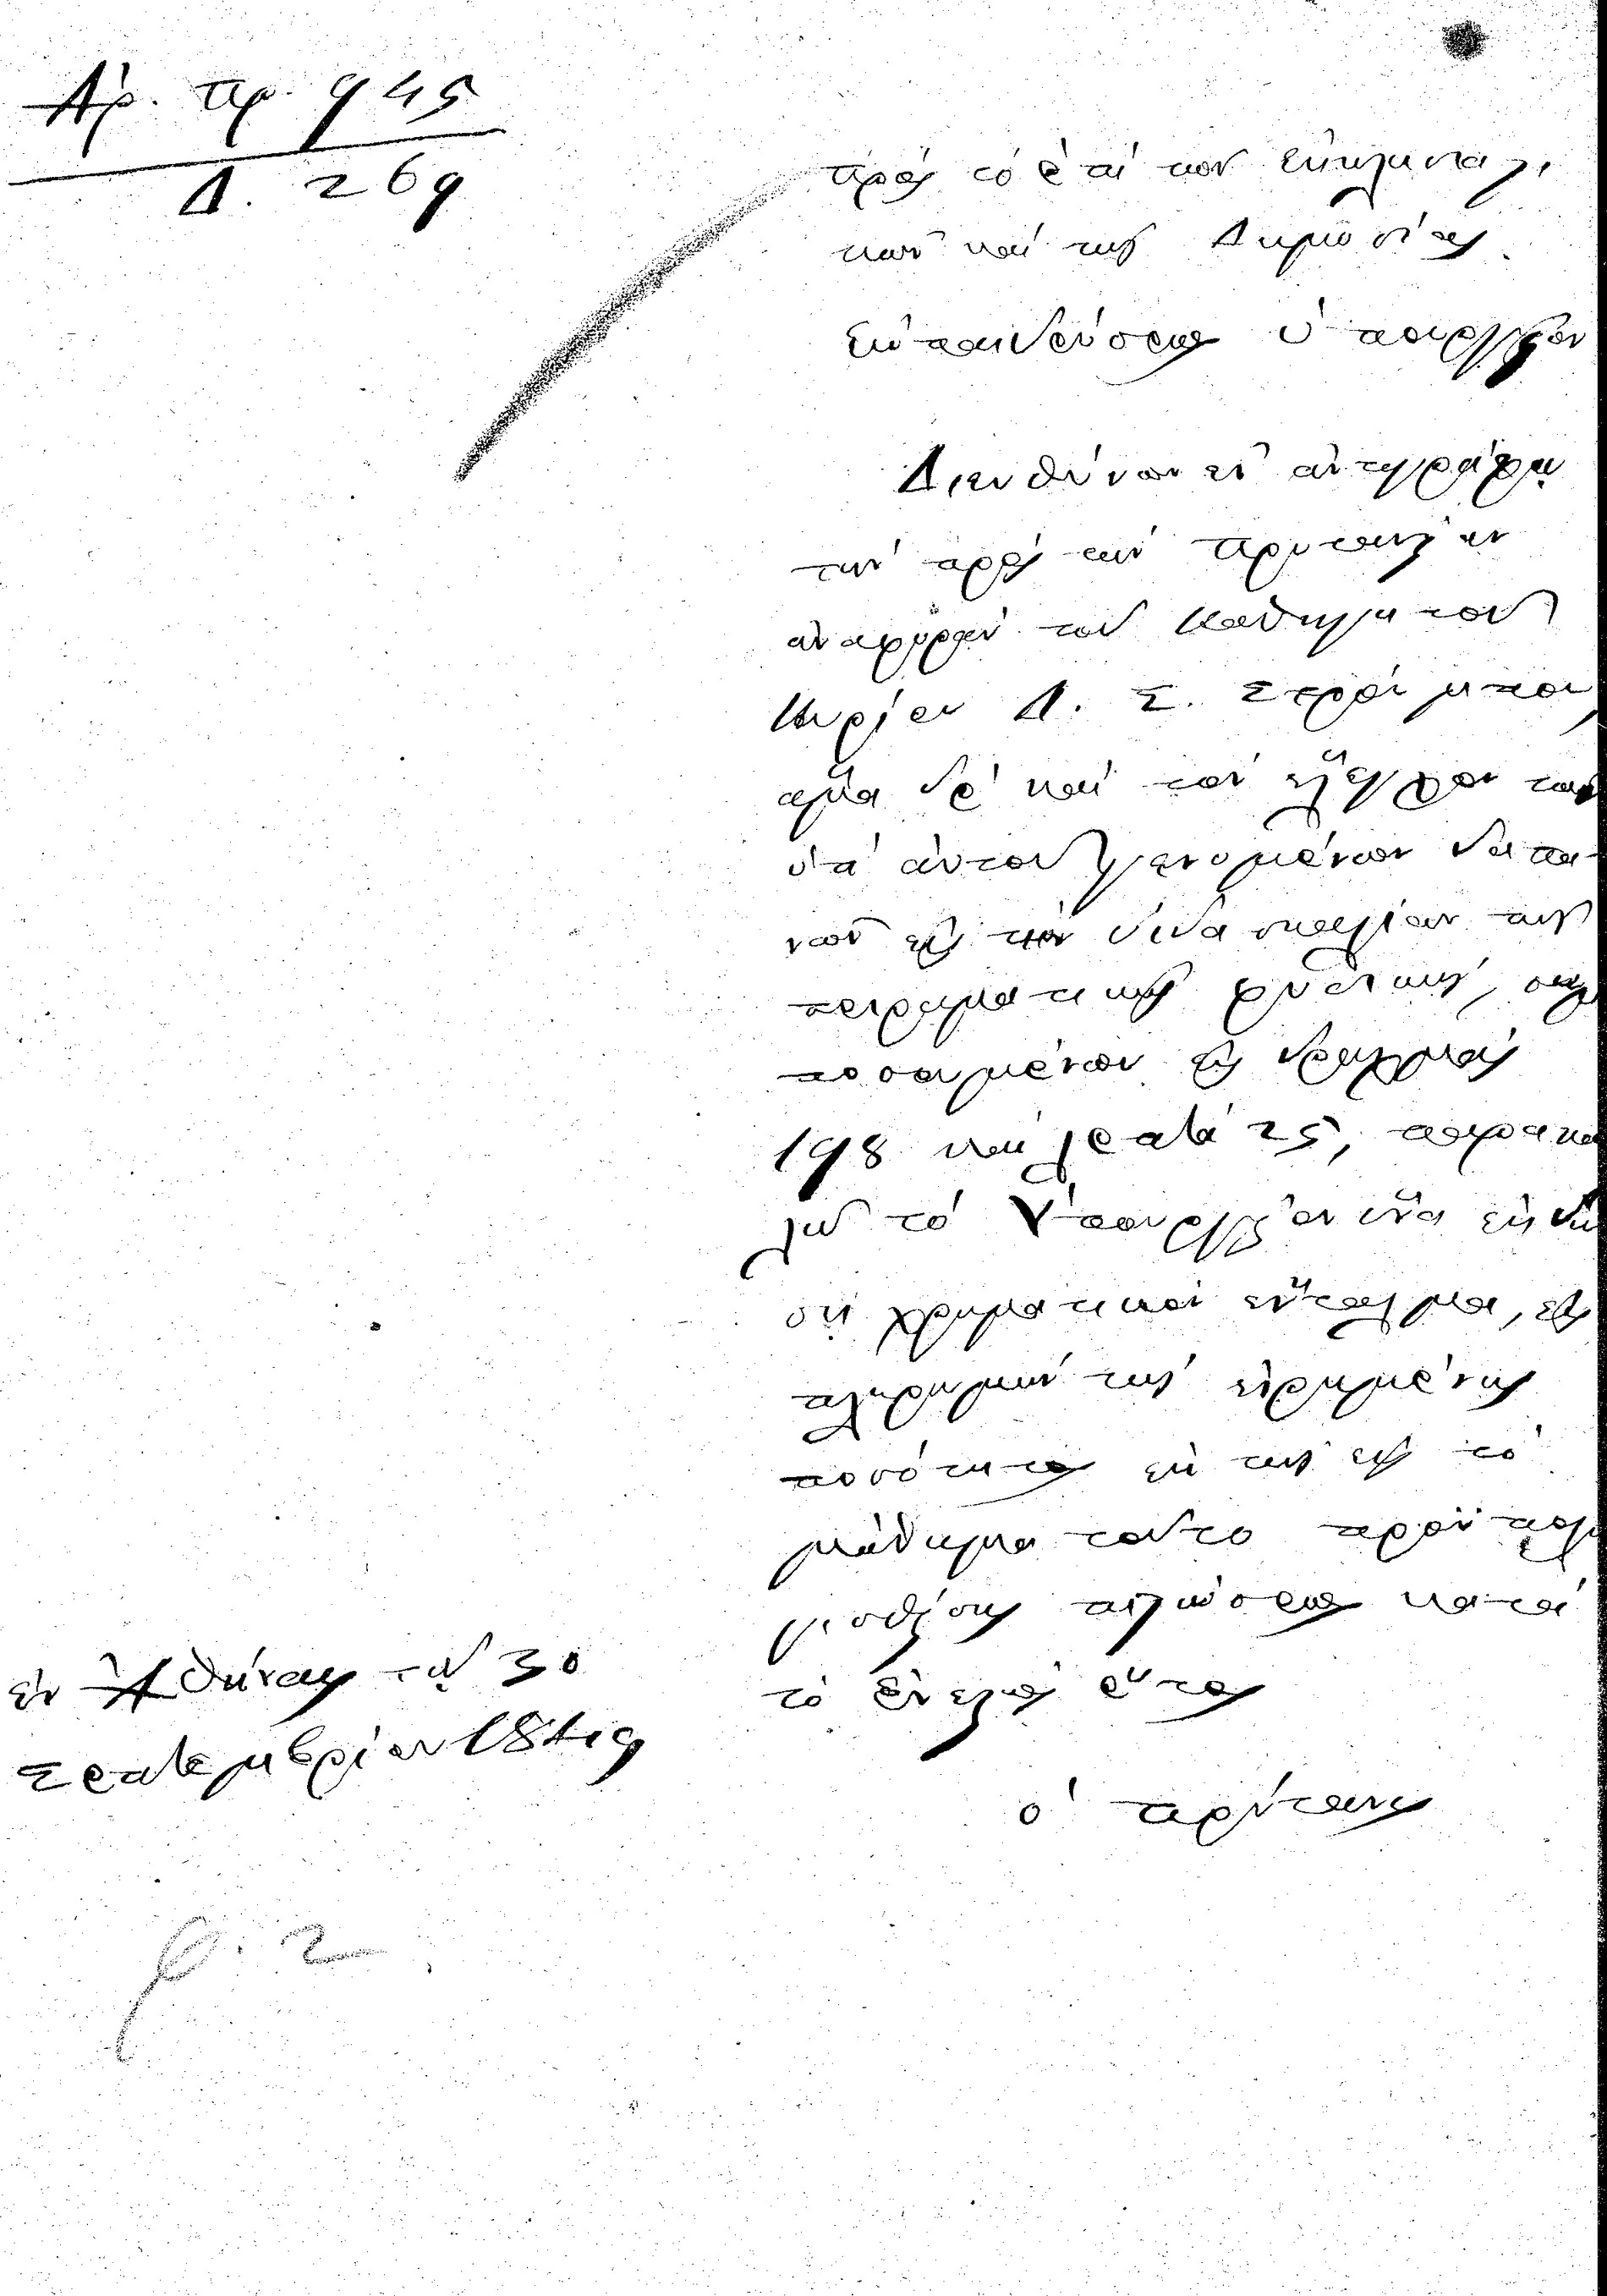 Ἀρ. πρ. 945
Δ. 269
πρὸς τὸ ἐπὶ τῶν Ἐκκλησιαστι
κῶν καὶ τῆς Δημοσίας
Ἐκπαιδεύσεως Ὑπουργεῖον
Διευθύνων ἐν ἀντιγράφῳ
τὴν πρὸς τὴν Πρυτανείαν
ἀναφορὰν τοῦ Καθηγητοῦ
Κυρίου Δ. Σ. Στρούμπου
ἅμα δὲ καὶ τὸν ἔλεγχον τῶν
ὑπ' αὐτοῦ γενομένων δαπα-
νῶν εἰς τὴν διδασκαλίαν τῆς
πειραματικῆς φυσικῆς,
ποσουμένων εἰς δραχμὰς
198 καὶ λεπτὰ 25, παρακα
λῶ τὸ Ὑπουργεῖον ἵνα ἐκδώ
σῃ χρηματικὸν ἔνταλμα, εἰς
πληρωμὴν τῆς εἰρημένης
ποσότητος ἐκ τῆς εἰς τὸ
μάθημα τοῦτο προϋπολο
γισθείσης πιστώσεως κατὰ
τὸ ἐνεστὸς ἔτος
ὁ πρύτανις
ἐν Ἀθήναις τῇ 30
Σεπτεμβρίου 1849
φ. 2